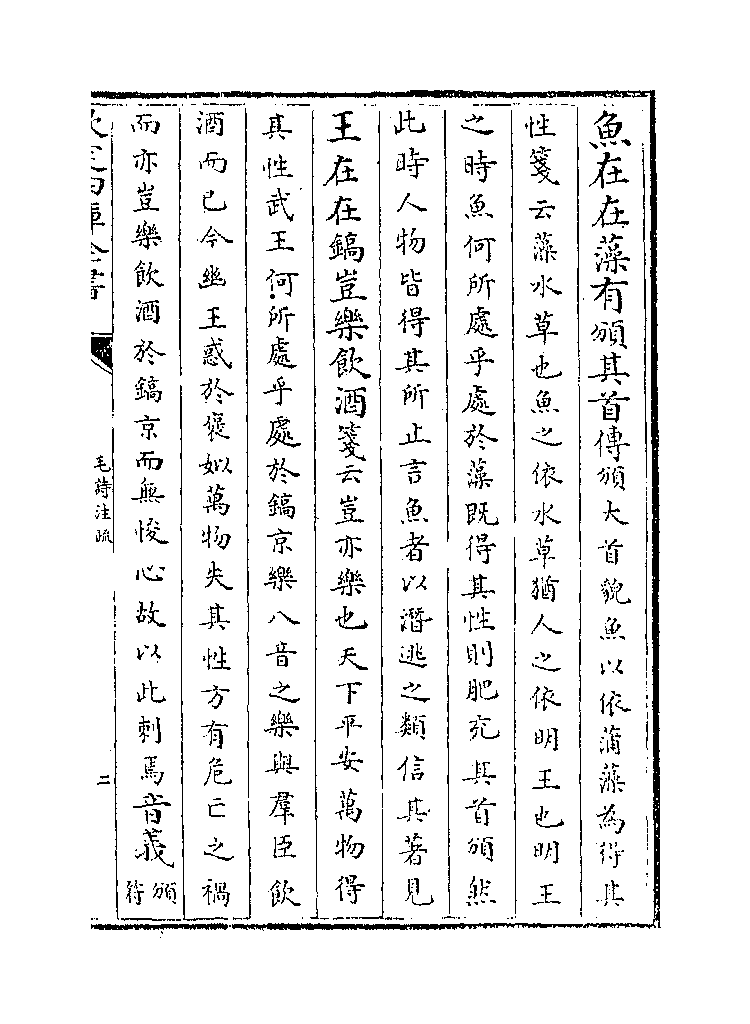 魚在在藻有頒其首傳頒大首貌魚以依蒲藻為得其
性箋云藻水草也魚之依水草猶人之依明王也明王
之時魚何所處乎處於藻既得其性則肥充其首頒然
此時人物皆得其所止言魚者以潛逃之類信其著見
王在在鎬豈樂飲酒箋云豈亦樂也天下平安萬物得
其性武王何所處乎處於鎬京樂八音之樂與羣臣飲
酒而已今幽王惑於襃姒萬物失其性方有危亡之禍
而亦豈樂飲酒於鎬京而無悛心故以此刺焉音義頒
符
欽定四庫全書
毛詩注疏
二